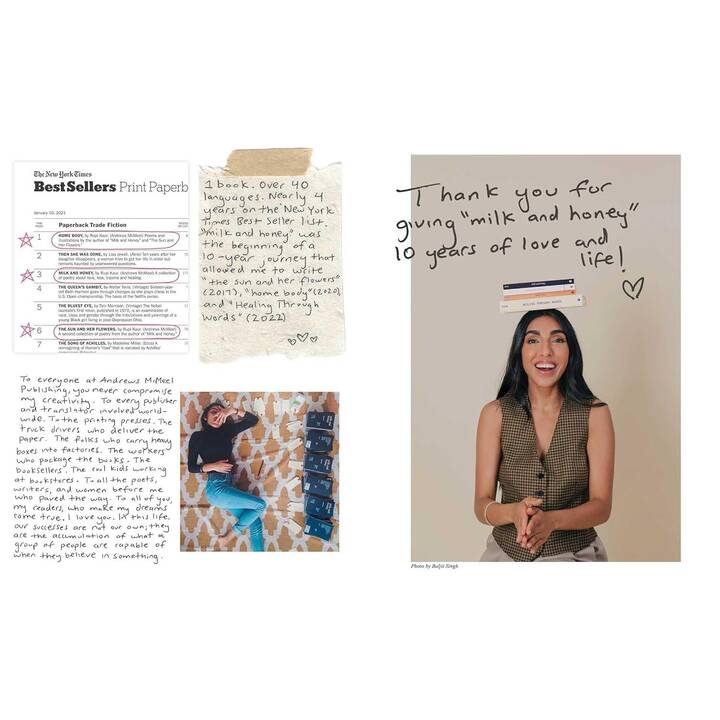 The New York Times
Best Sellers Print Paperb
January 10, 2021
Paperback Trade Fiction
1 HOME BODY, by Rupi Kaur. (Andrews McMeel) Poems and
illustrations by the author of "Milk and Honey" and "The Sun and
Her Flowers."
2 THEN SHE WAS GONE, by Lisa Jewell. (Atria) Ten years after her
daughter disappears, a woman tries to get her life in order but
remains haunted by unanswered questions.
3 MILK AND HONEY, by Rupi Kaur. (Andrews McMeel) A collection
of poetry about love, loss, trauma and healing.
4 THE QUEEN'S GAMBIT, by Walter Tevis. (Vintage) Sixteen-year-
old Beth Harmon goes through changes as she plays chess in the
U.S. Open championship. The basis of the Netflix series.
5 THE BLUEST EYE, by Toni Morrison. (Vintage) The Nobel
laureate's first novel, published in 1970, is an examination of
race, class and gender through the tribulations and yearnings of a
young Black girl living in post-Depression Ohio.
6 THE SUN AND HER FLOWERS, by Rupi Kaur. (Andrews McMeel)
A second collection of poetry from the author of "Milk and Honey."
7 THE SONG OF ACHILLES, by Madeline Miller. (Ecco) A
reimagining of Homer's "Iliad" that is narrated by Achilles'
1 book. Over 40
languages. Nearly 4
years on the New York
Times Best Seller list.
"milk and honey" was
the beginning of a
10-year journey that
allowed me to write
"the sun and her flowers"
(2017), "home body" (2020)
and "Healing Through
Words" (2022)
To everyone at Andrews McMeel
Publishing, you never compromise
my creativity. To every publisher
and translator involved world-
wide. To the printing presses. The
truck drivers who deliver the
paper. The folks who carry heavy
boxes into factories. The workers
who package the books. The
booksellers. The cool kids working
at bookstores. To all the poets,
writers, and women before me
who paved the way. To all of you,
my readers, who make my dreams
come true, I love you. In this life,
our successes are not our own; they
are the accumulation of what a
group of people are capable of
when they believe in something.
Thank you for
giving "milk and honey"
10 years of love and
life!
HEALING THROUGH WORDS
Photo by Baljit Singh